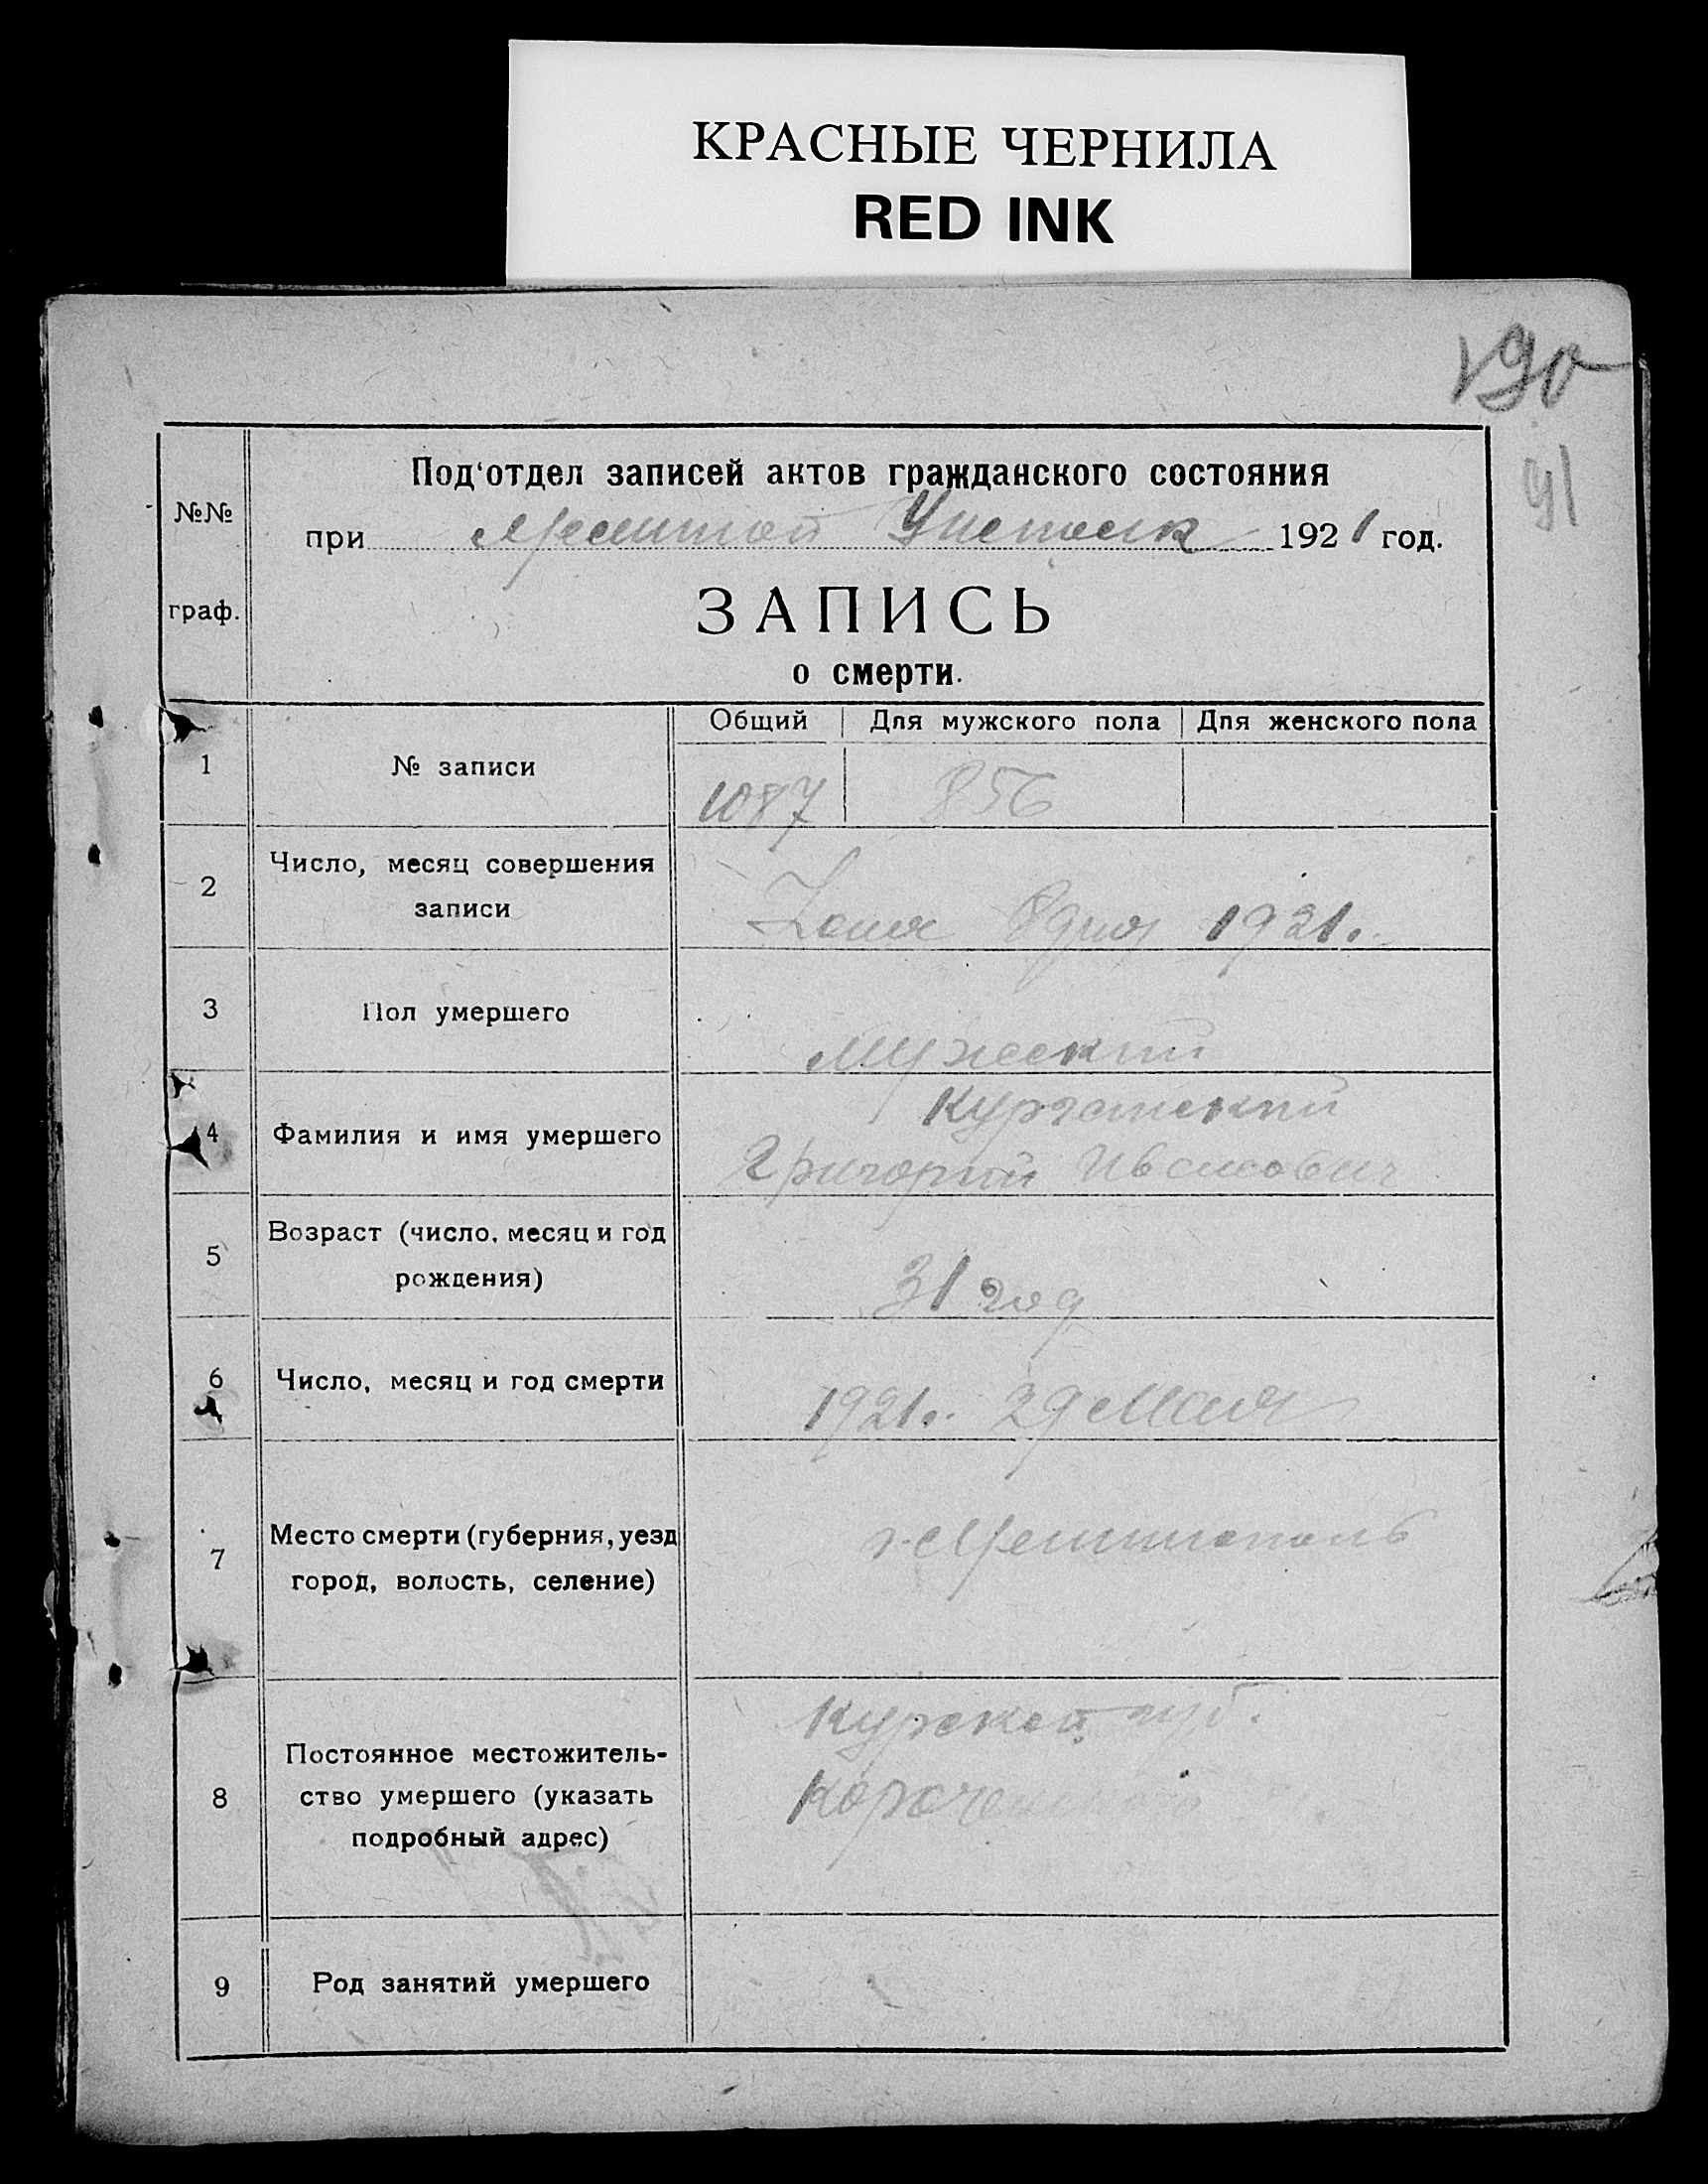 КРАСНЫЕ ЧЕРНИЛА
RED INK
190
91
№№
граф.
Под‘отдел записей актов гражданского состояния
при 1921 год.
ЗАПИСЬ
о смерти.
Общий Для мужского пола Для женского пола
1 № записи 1087 856
2 Число, месяц совершения
записи
1921.
3 Пол умершего Мужеский
4 Фамилия и имя умершего
Курганский
Григорий Иванович
5 Возраст (число, месяц и год
рождения)
31 год
6 Число, месяц и год смерти 1921. 29 Мая
7 Место смерти (губерния, уезд
город, волость, селение)
г.
8 Постоянное местожитель-
ство умершего (указать
подробный адрес)
Курской губ.
9 Род занятий умершего